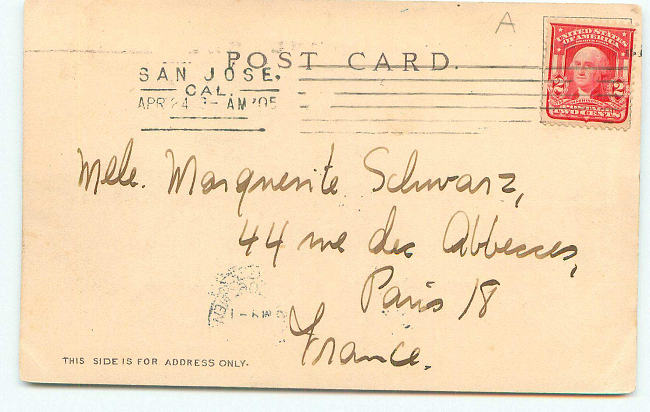 A
POST CARD.
SAN JOSE.
CAL.
APR 24 AM '05
UNITED STATES
OF AMERICA
2 2
POSTAGE
TWO CENTS
Melle. Marguerite Schwarz,
44 rue des Abbesses,
Paris 18
France.
THIS SIDE IS FOR ADDRESS ONLY.